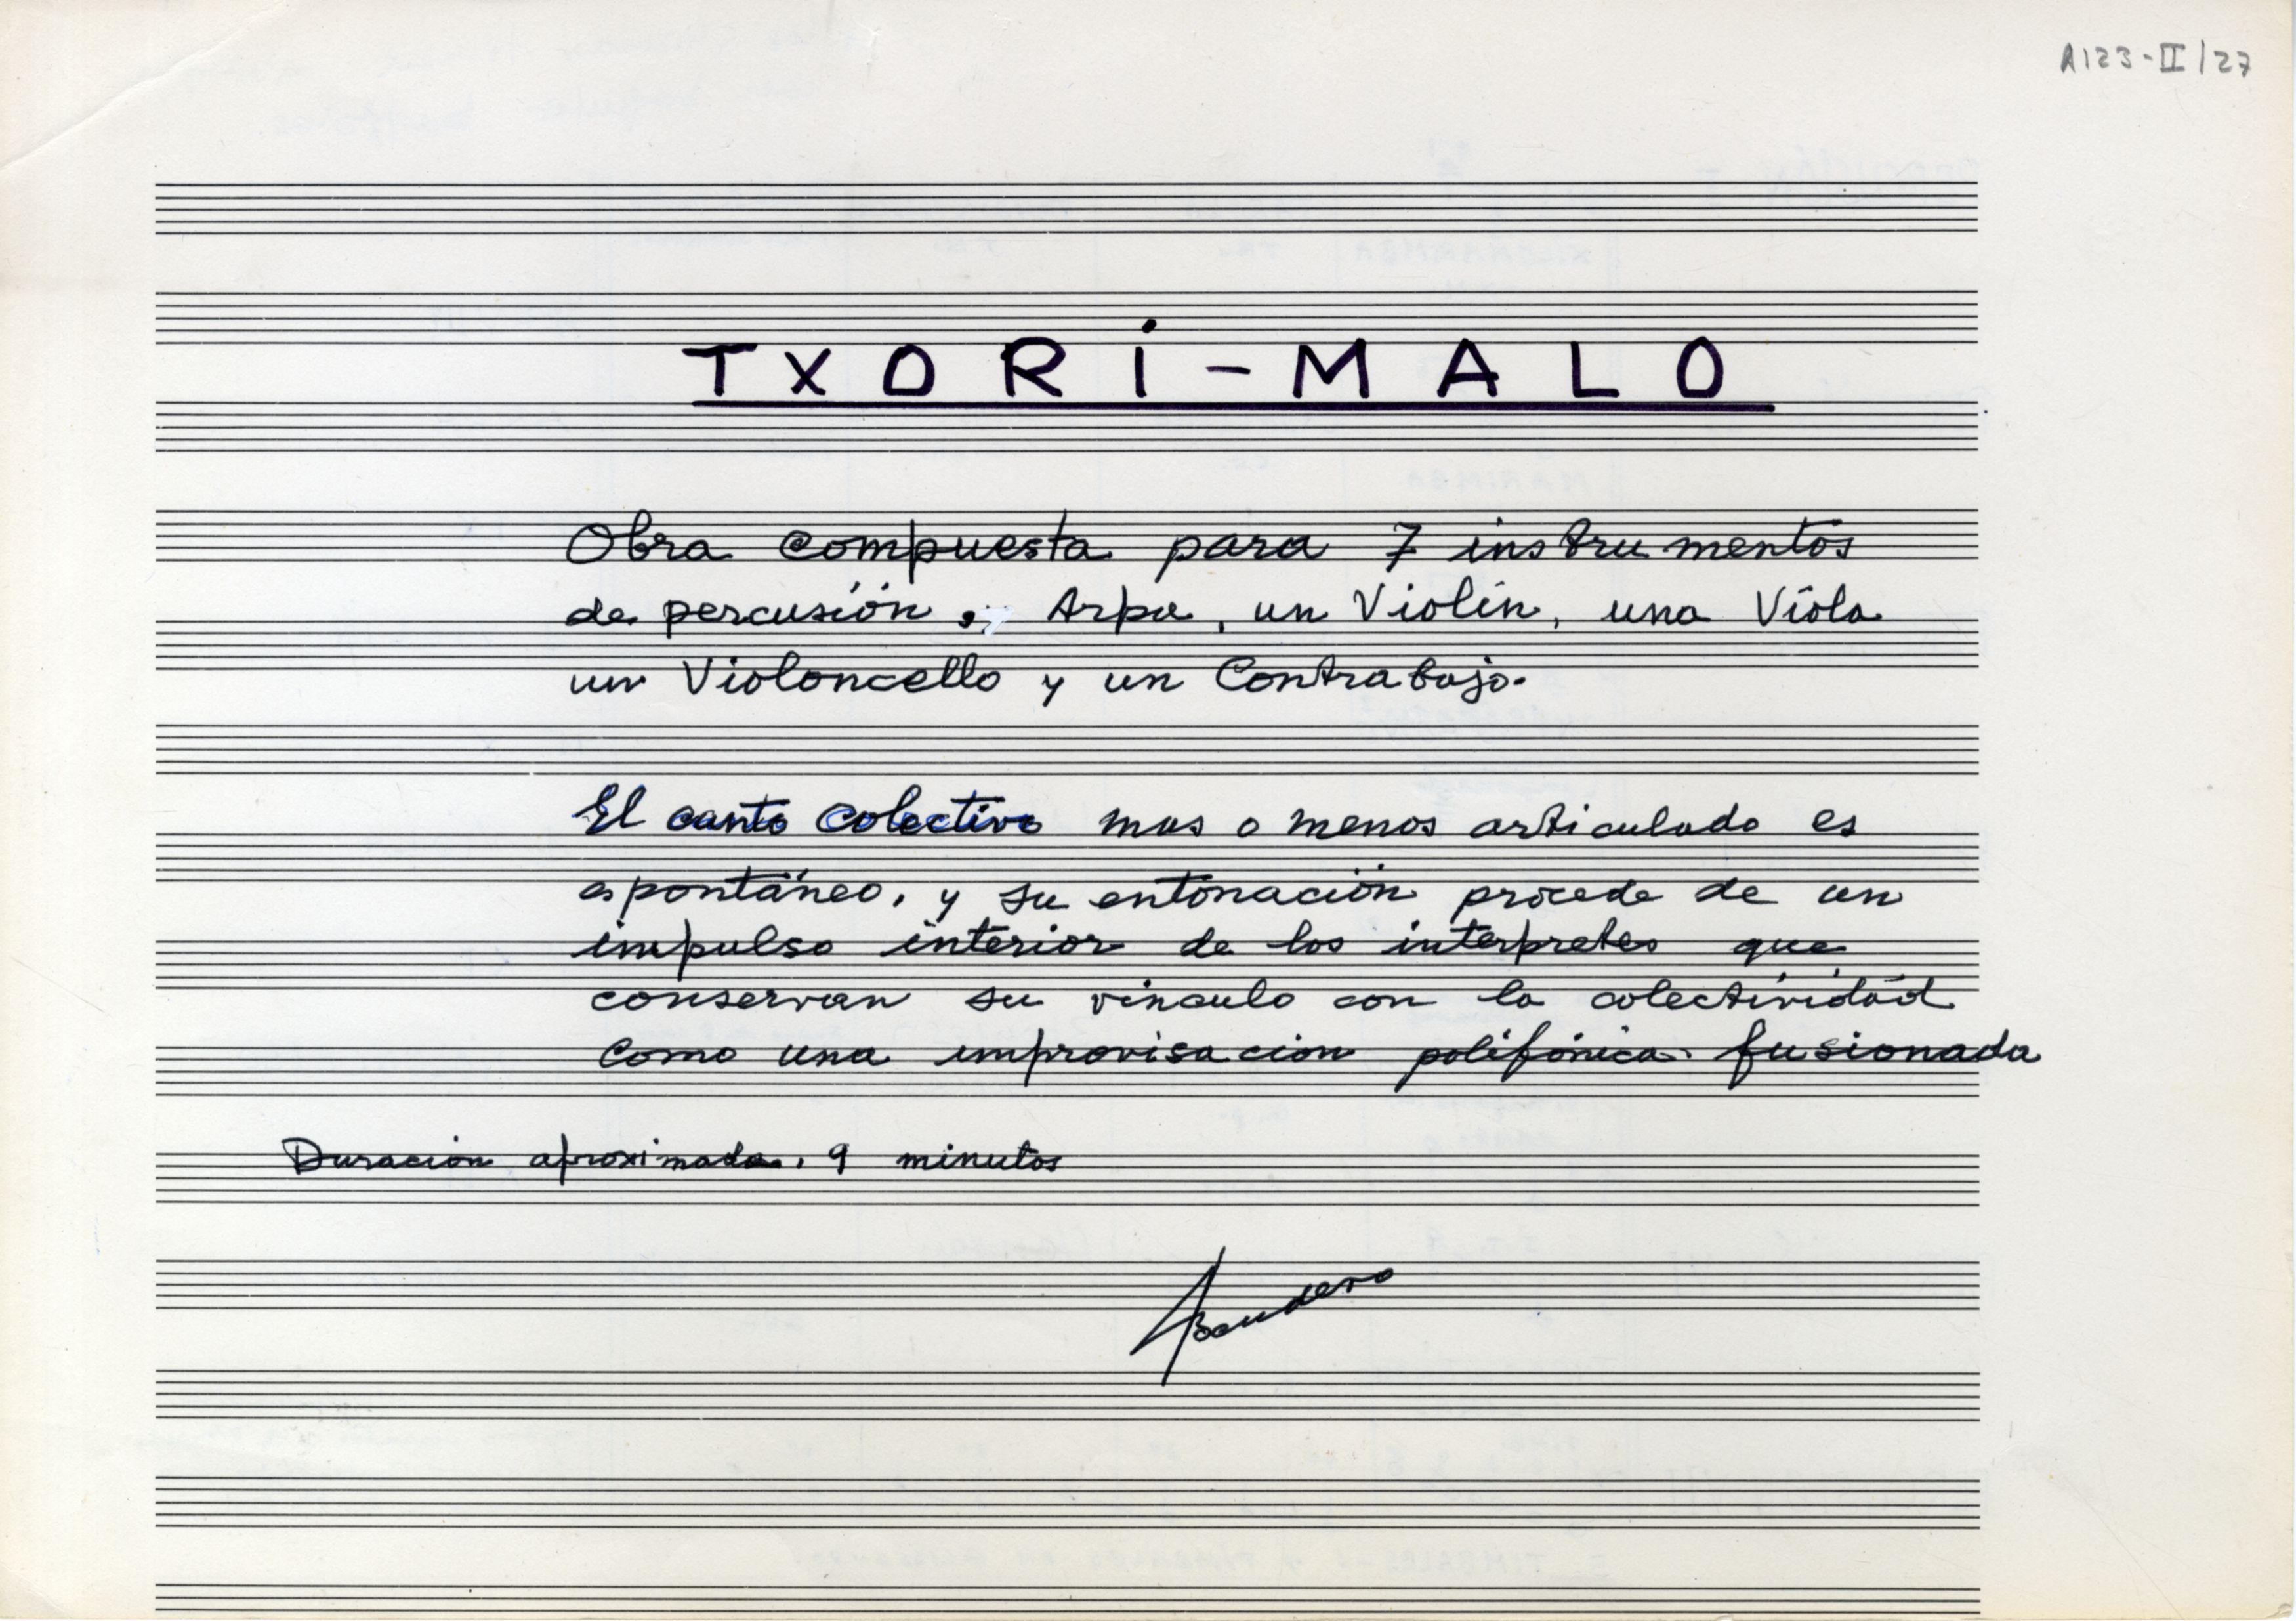 A123-II/27
TXORI-MALO
Obra compuesta para 7 instrumentos
de percusión, Arpa, un Violín, una Viola
un Violoncello y un Contrabajo.
El canto colectivo mas o menos articulado es
espontáneo, y su entonación procede de un
impulso interior de los interpretes que
conservan su vinculo con la colectividad
como una improvisacion polifónica fusionada
Duración aproximada, 9 minutos